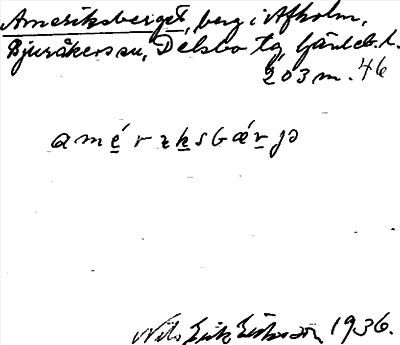 Ameriksberget, berg i Afholm,
Bjuråkers sn, Delsbo tg, Gävleb. l.
203 m. 46
amérzksbǽrjə
Nils Erik Eriksson 1936.